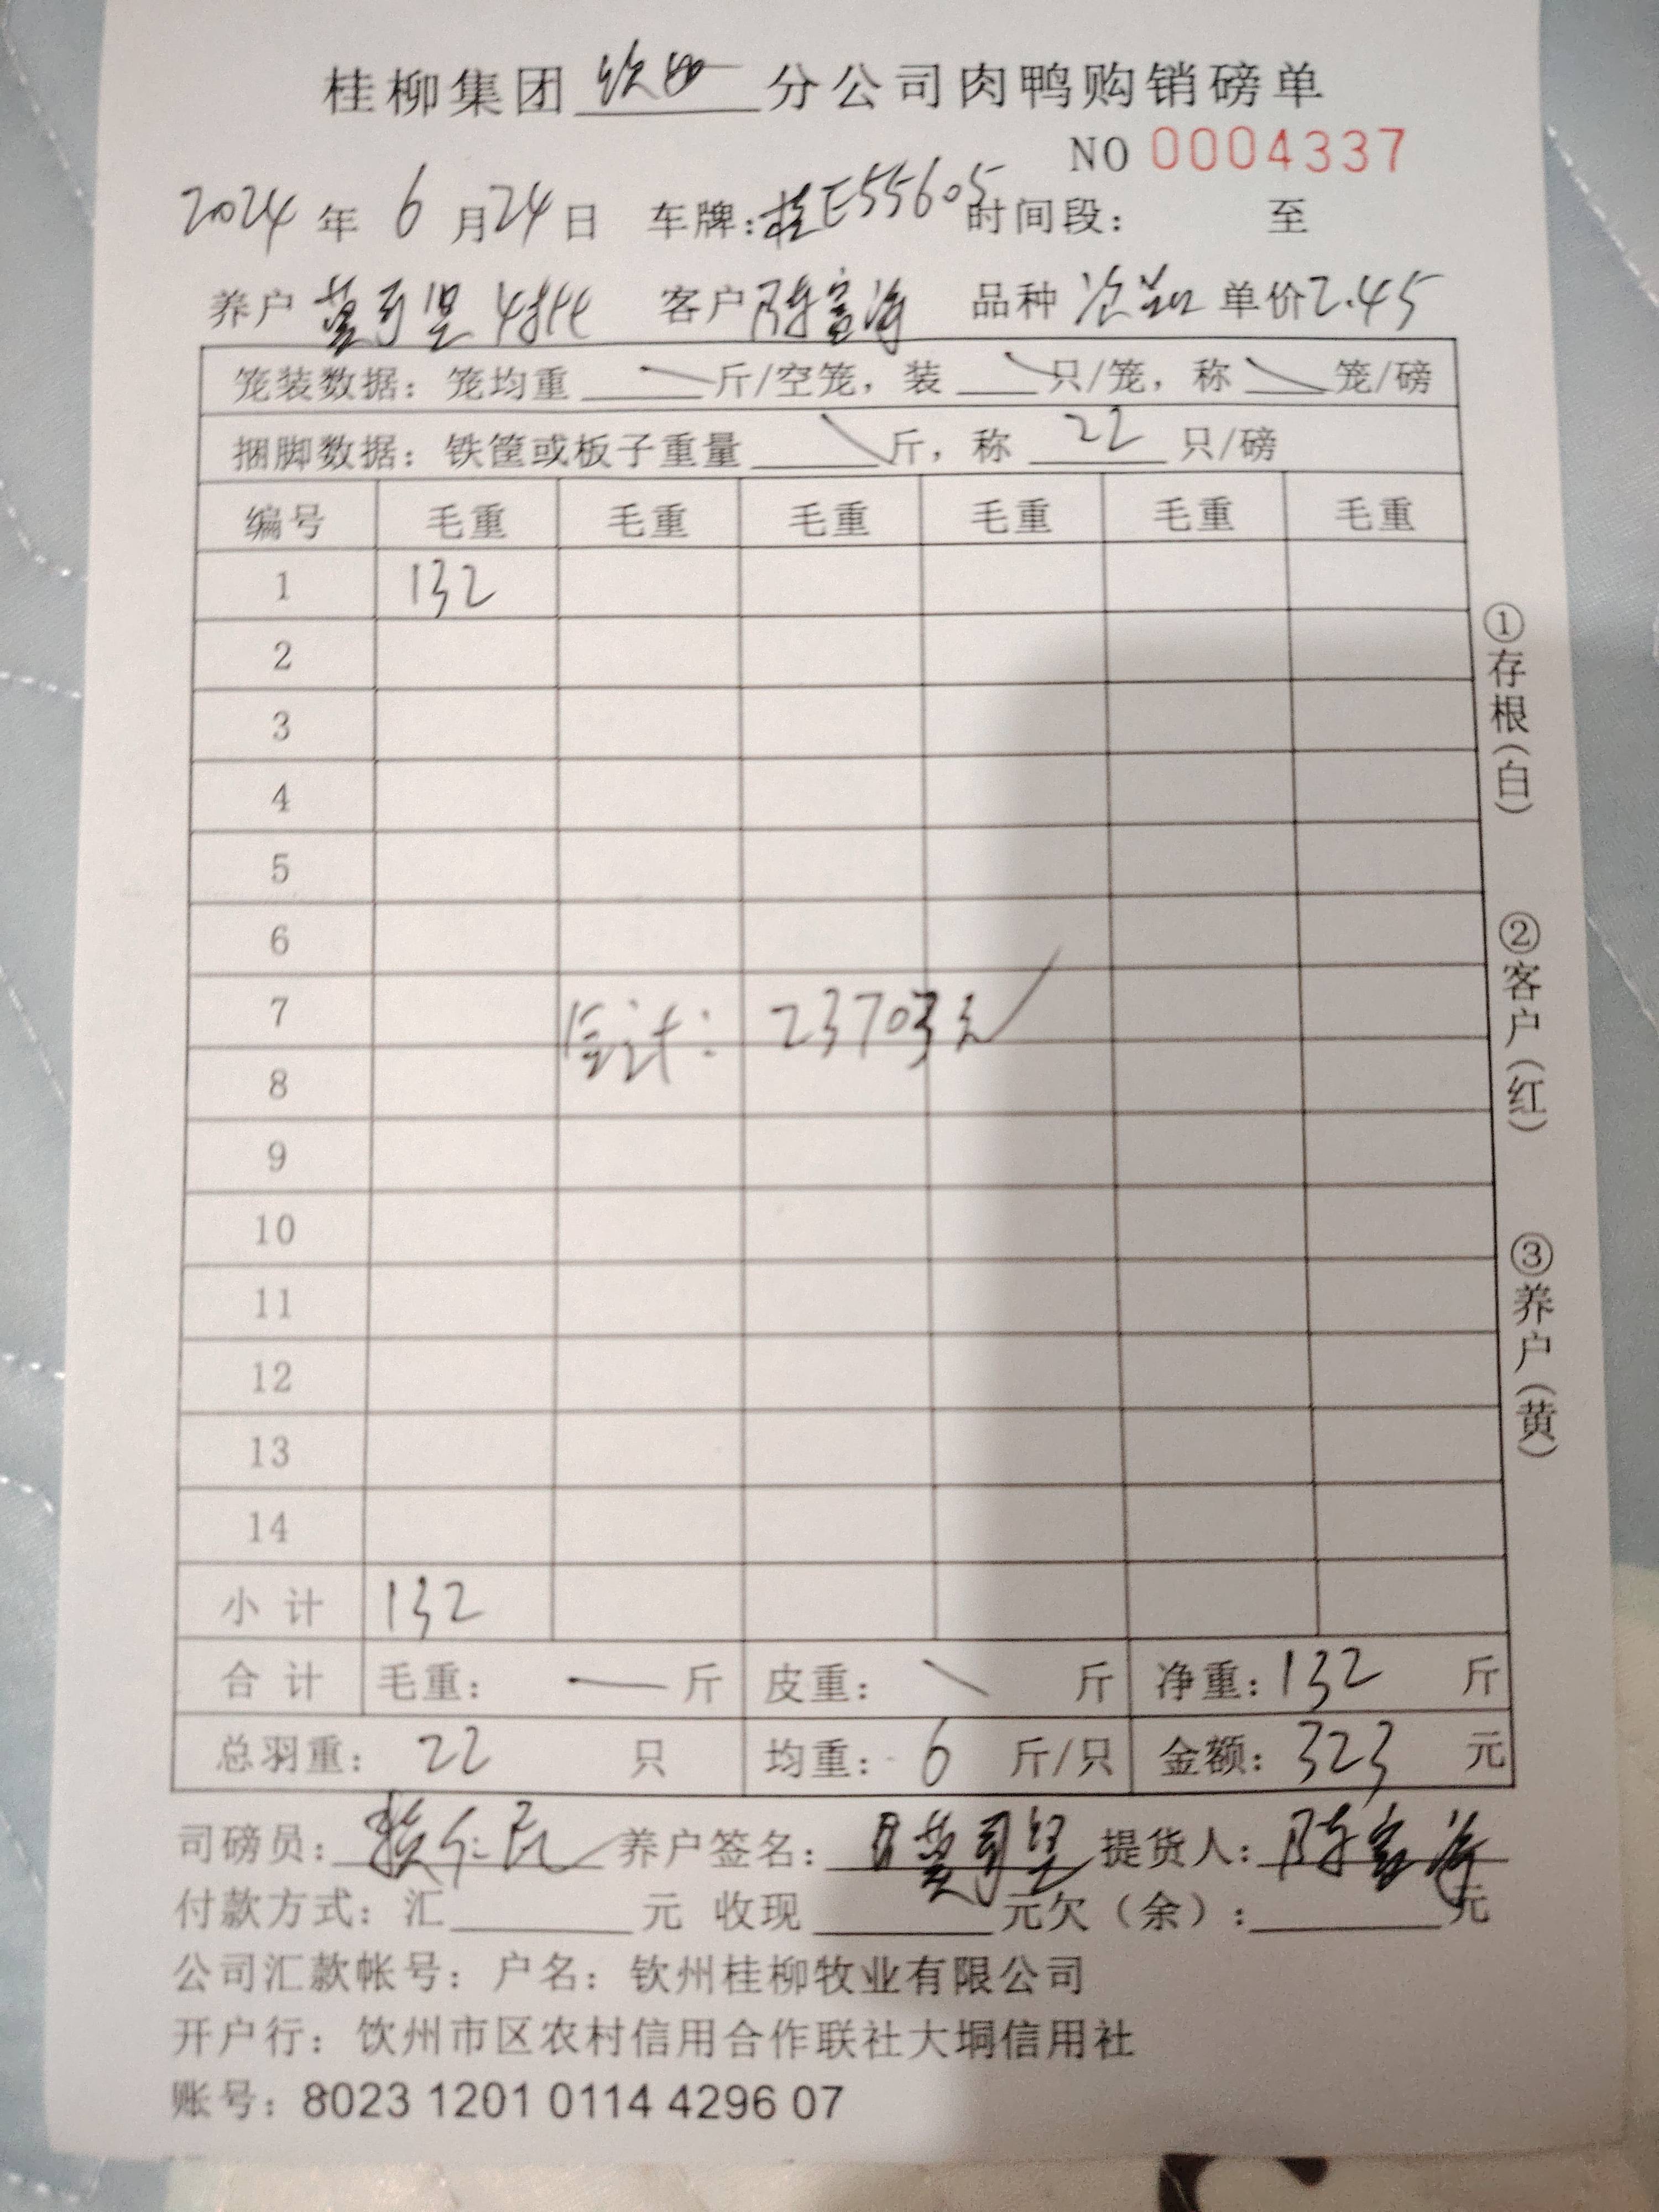 桂柳集团 钦州 分公司肉鸭购销磅单
NO 0004337
2024 年 6 月 24 日 车牌:桂E55605 时间段: 至
养户 4批 客户 陈富海 品种 单价 2.45
笼装数据: 笼均重 斤/空笼, 装 只/笼, 称 笼/磅
捆脚数据: 铁筐或板子重量 斤, 称 22 只/磅
编号 毛重 毛重 毛重 毛重 毛重 毛重
1 132
2
3
4
5
6
7
合计: 23703元
8
9
10
11
12
13
14
小计 132
合计 毛重: 斤 皮重: 斤 净重: 132 斤
总羽重: 22 只 均重: 6 斤/只 金额: 323 元
司磅员: 养户签名: 提货人: 陈富海
付款方式: 汇 元 收现 元欠(余): 元
公司汇款帐号: 户名: 钦州桂柳牧业有限公司
开户行: 饮州市区农村信用合作联社大垌信用社
账号: 8023 1201 0114 4296 07
①存根(白)
②客户(红)
③养户(黄)